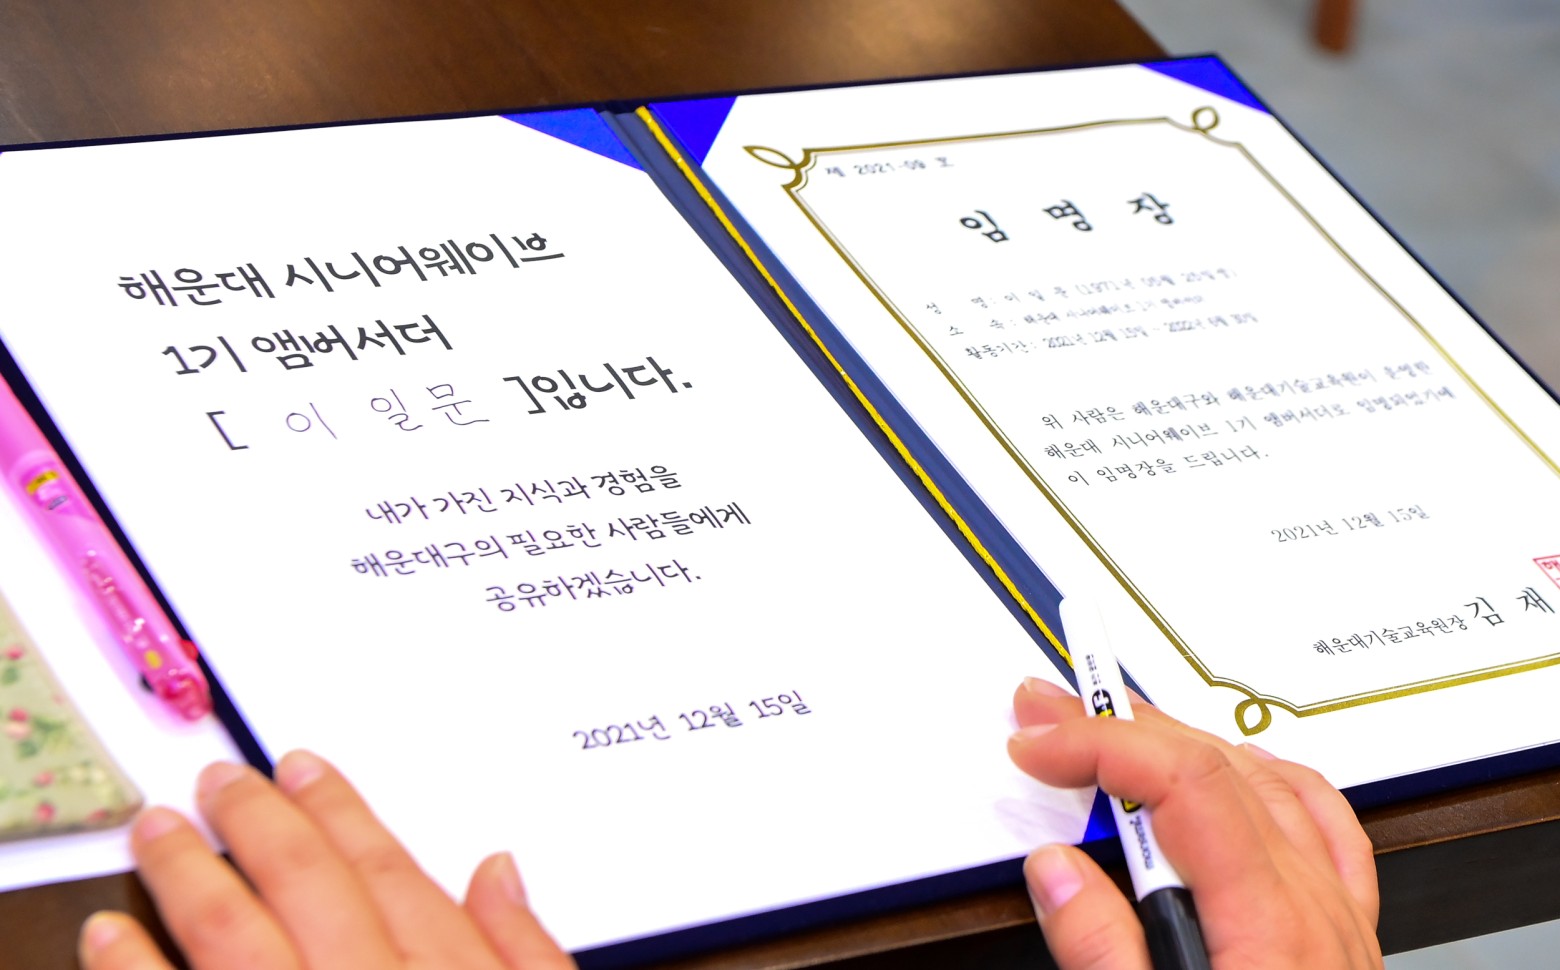 해운대 시니어웨이브
1기 앰버서더
[ 이 일문 ]입니다.
내가 가진 지식과 경험을
해운대구의 필요한 사람들에게
공유하겠습니다.
2021년 12월 15일
제 2021-09 호
임 명 장
성 명 : 이 일 문 (1971년 05월 25일생)
소 속 : 해운대 시니어웨이브 1기 앰버서더
활동기간 : 2021년 12월 15일 ~ 2022년 6월 30일
위 사람은 해운대구와 해운대기술교육원이 운영한
해운대 시니어웨이브 1기 앰버서더로 임명되었기에
이 임명장을 드립니다.
2021년 12월 15일
해운대기술교육원장 김 재
monami